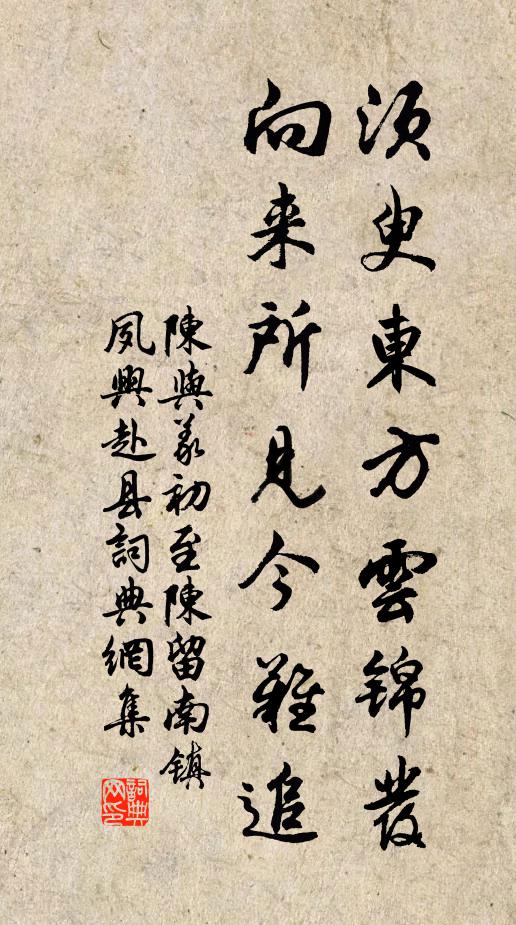 須臾東方雲錦發
向来所見今難追
陳與義初至陳留南鎮
夙興赴县詞典網集
詞典网印